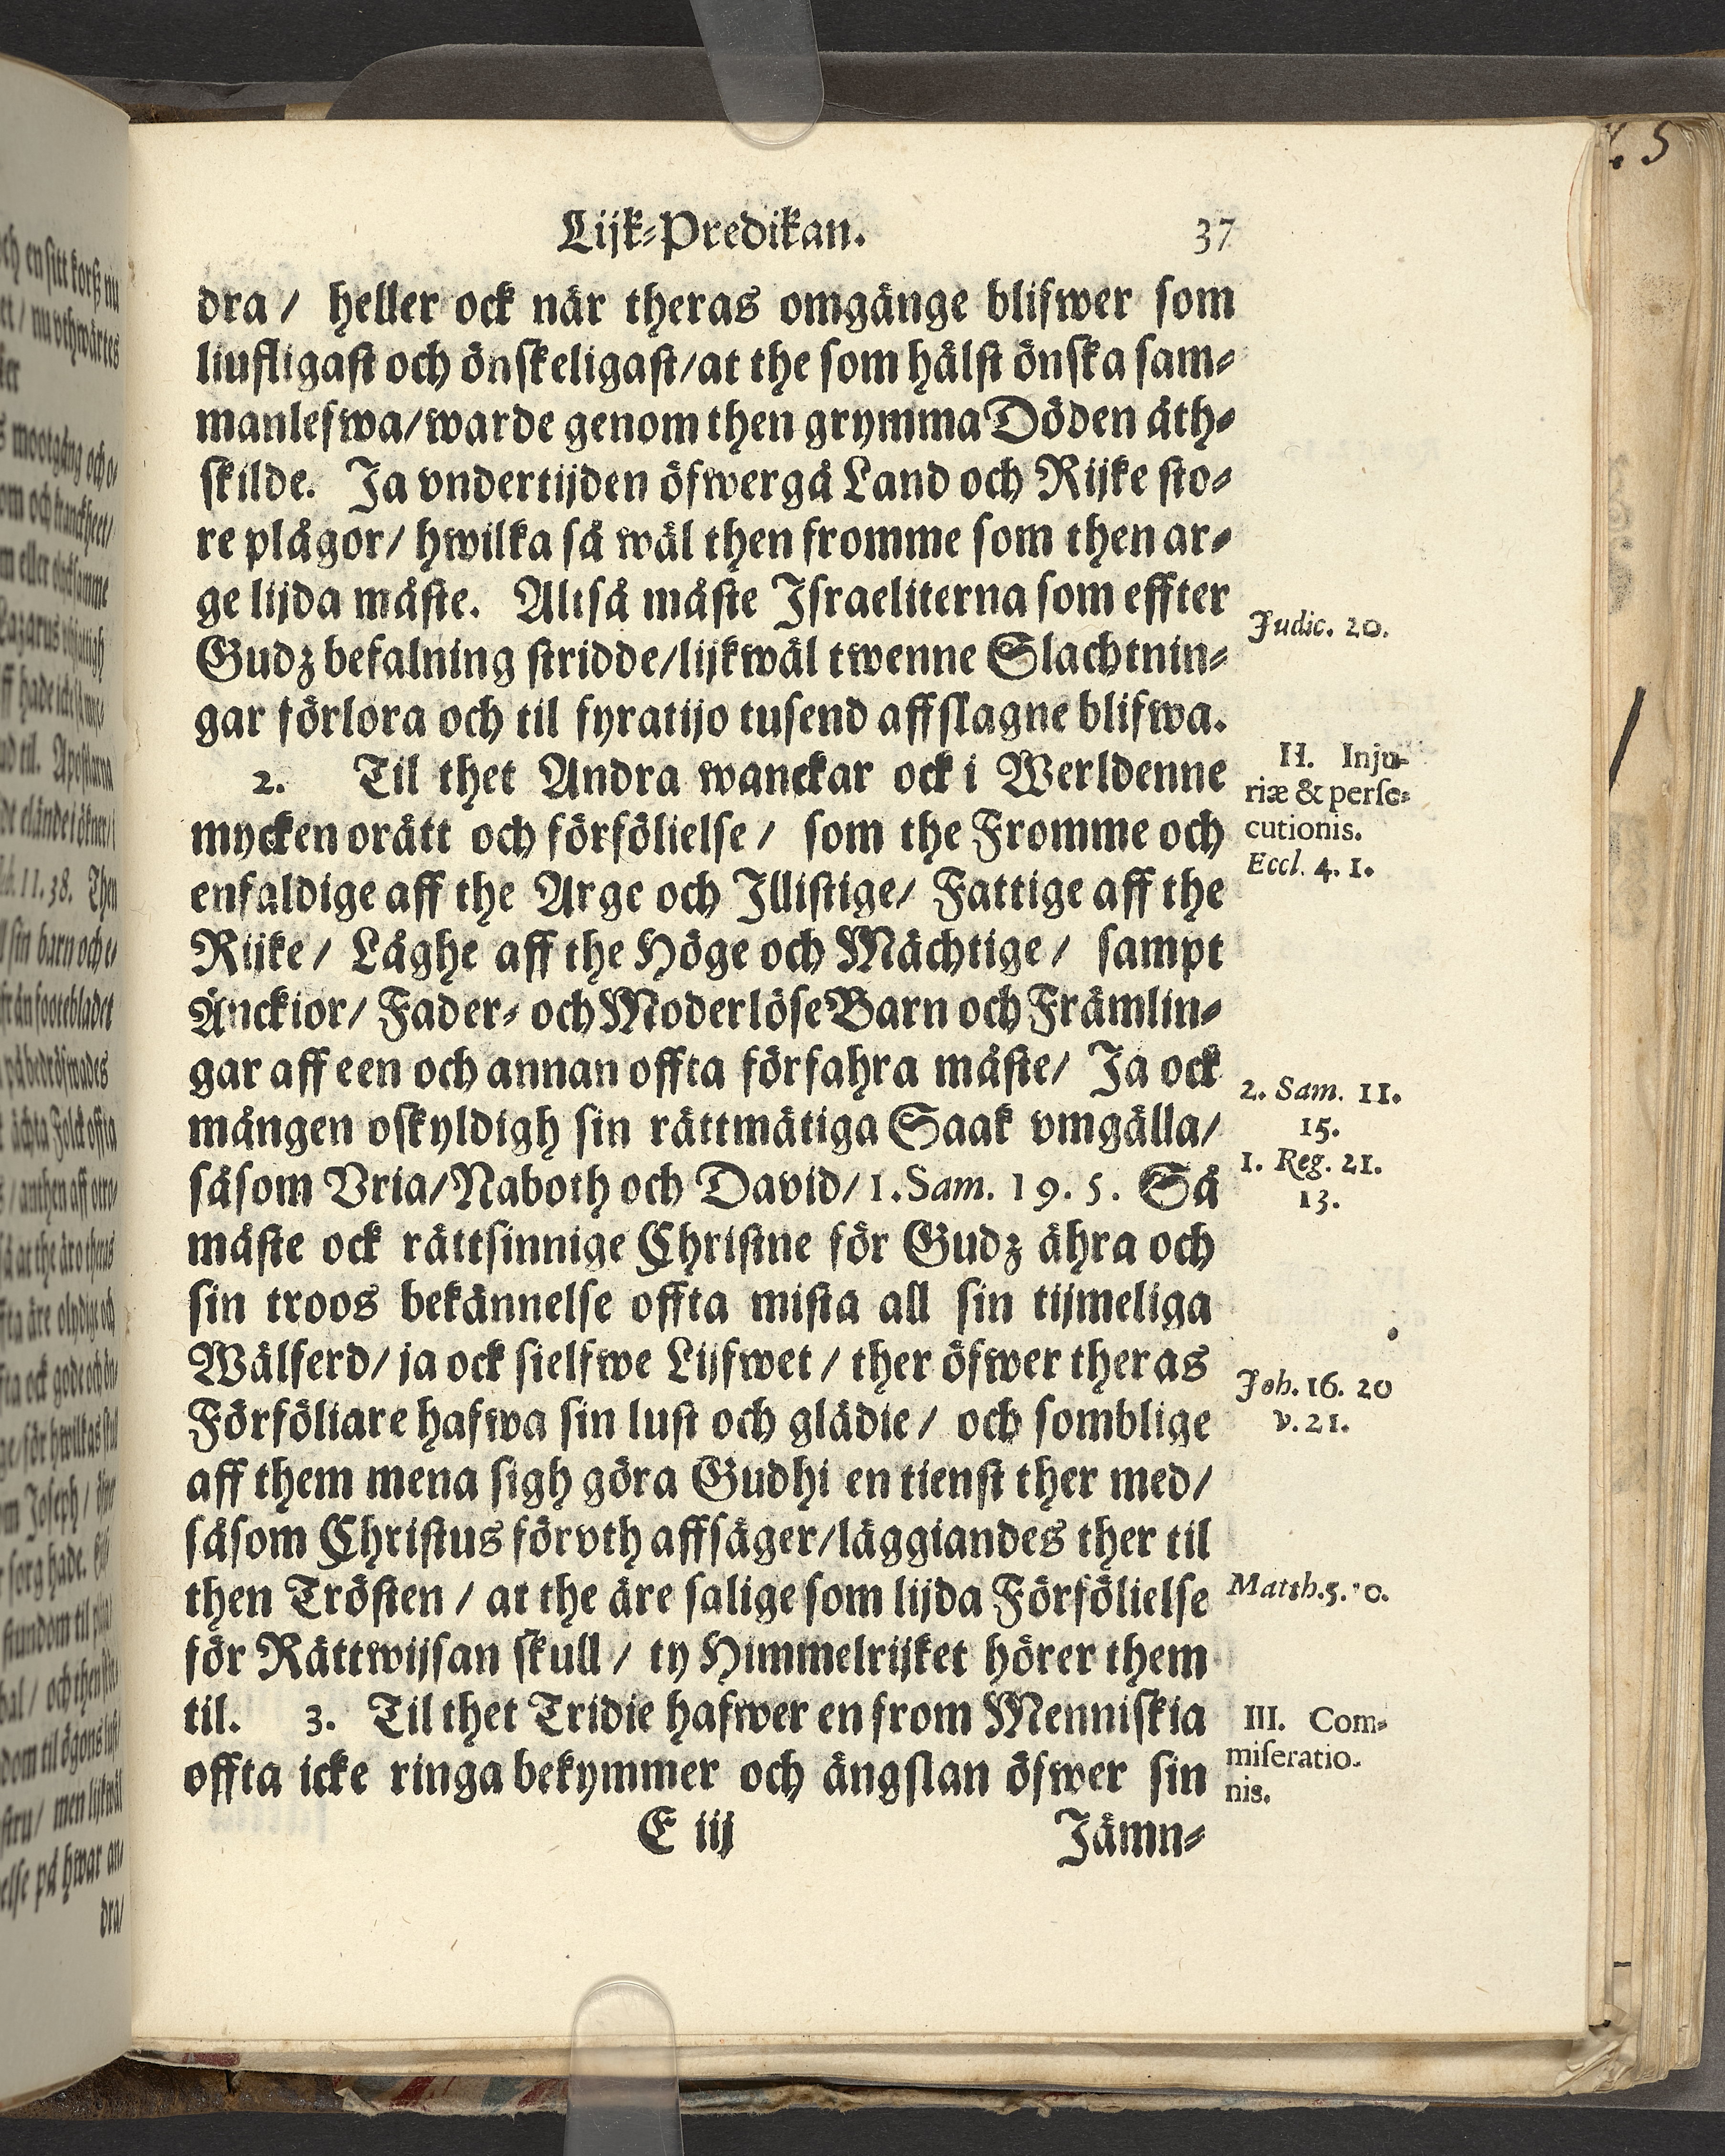 Lijk-Predikan. 37
dra/ heller ock när theras omgänge blifwer som
liufligast och önskeligast/at the som hälst önska sam-
manlefwa/warde genom then grymma Döden åth-
skilde. Ja vndertijden öfwergå Land och Rijke sto-
re plågor/ hwilka så wäl then fromme som then ar-
ge lijda måste. Altså måste Israeliterna som effter
Gudz befalning stridde/lijkwäl twenne Slachtnin-
gar förlora och til fyratijo tusend affslagne blifwa.
Judic. 20.
2. Til thet Andra wanckar ock i Werldenne
mycken orätt och förfölielse/ som the Fromme och
enfaldige aff the Arge och Illistige/ Fattige aff the
Rijke/ Låghe aff the Höge och Mächtige/ sampt
Änckior/ Fader- och Moderlöse Barn och Främlin-
gar aff een och annan offta förfahra måste/ Ja ock
mången oskyldigh sin rättmätiga Saak vmgälla/
såsom Vria/Naboth och David/1. Sam. 19. 5. Så
måste ock rättsinnige Christne för Gudz ähra och
sin troos bekännelse offta mista all sin tijmeliga
Wälferd/ ja ock sielfwe Lijfwet/ ther öfwer theras
Förföliare hafwa sin lust och glädie/ och somblige
aff them mena sigh göra Gudhi en tienst ther med/
såsom Christus förvth affsäger/läggiandes ther til
then Trösten/ at the äre salige som lijda Förfölielse
för Rättwijsan skull/ ty Himmelrijket hörer them
til. 3. Til thet Tridie hafwer en from Menniskia
offta icke ringa bekymmer och ängslan öfwer sin
II. Inju-
riæ & perse-
cutionis.
Eccl. 4. 1.
2. Sam. 11.
15.
1. Reg. 21.
13.
Joh. 16. 20
v. 21.
Matth. 5. 0.
III. Com-
miseratio-
nis.
E iij Jämn-